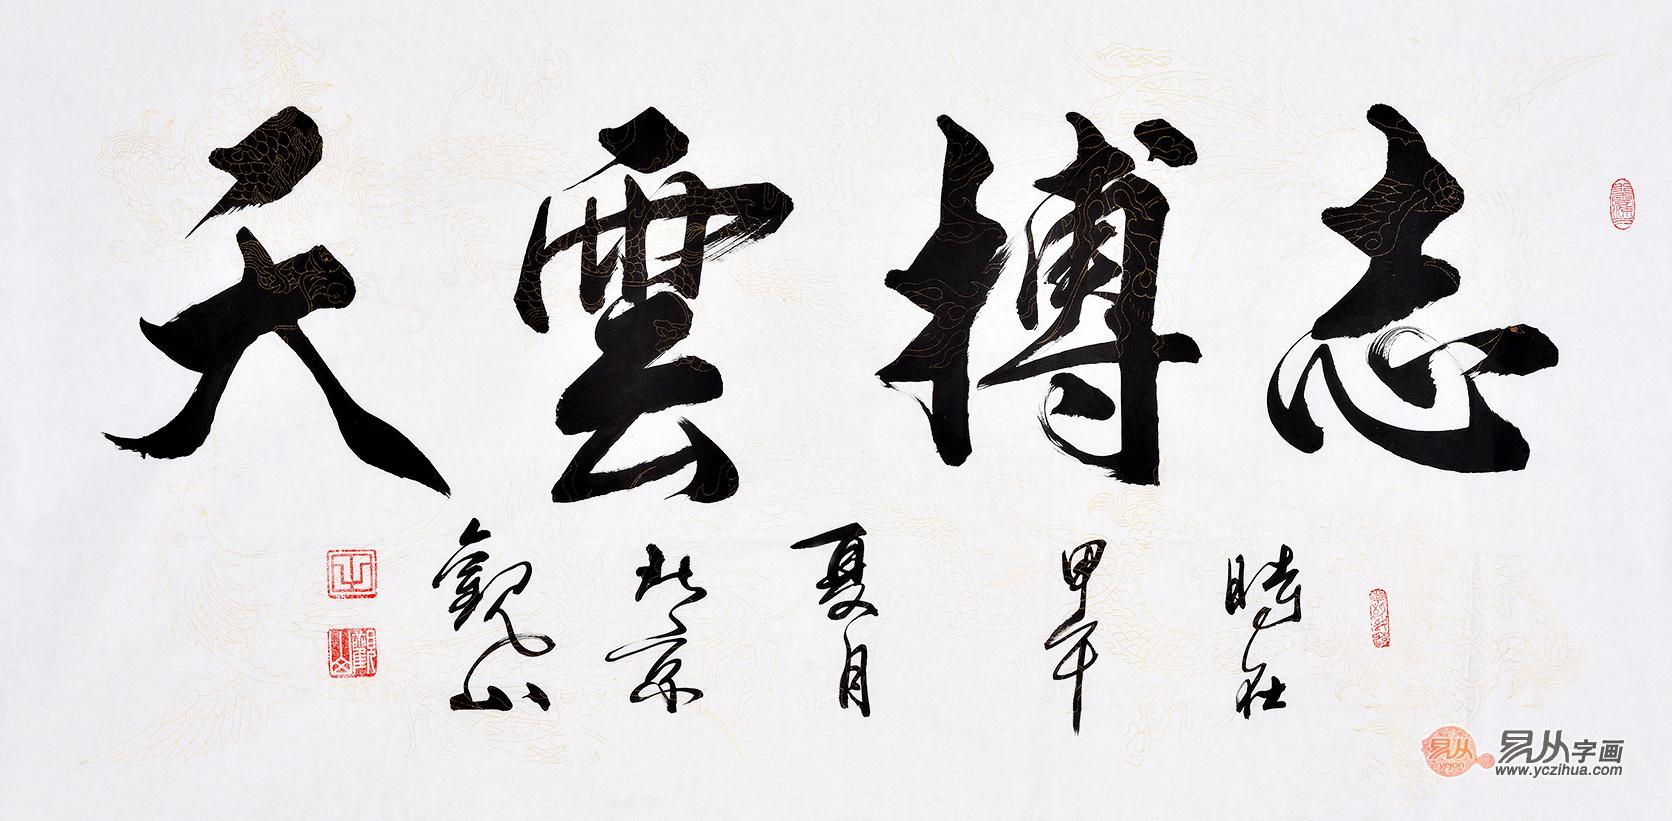 志搏雲天
時在
甲午
夏月
北京
觀山
易从字画
www.yczihua.com
yicon